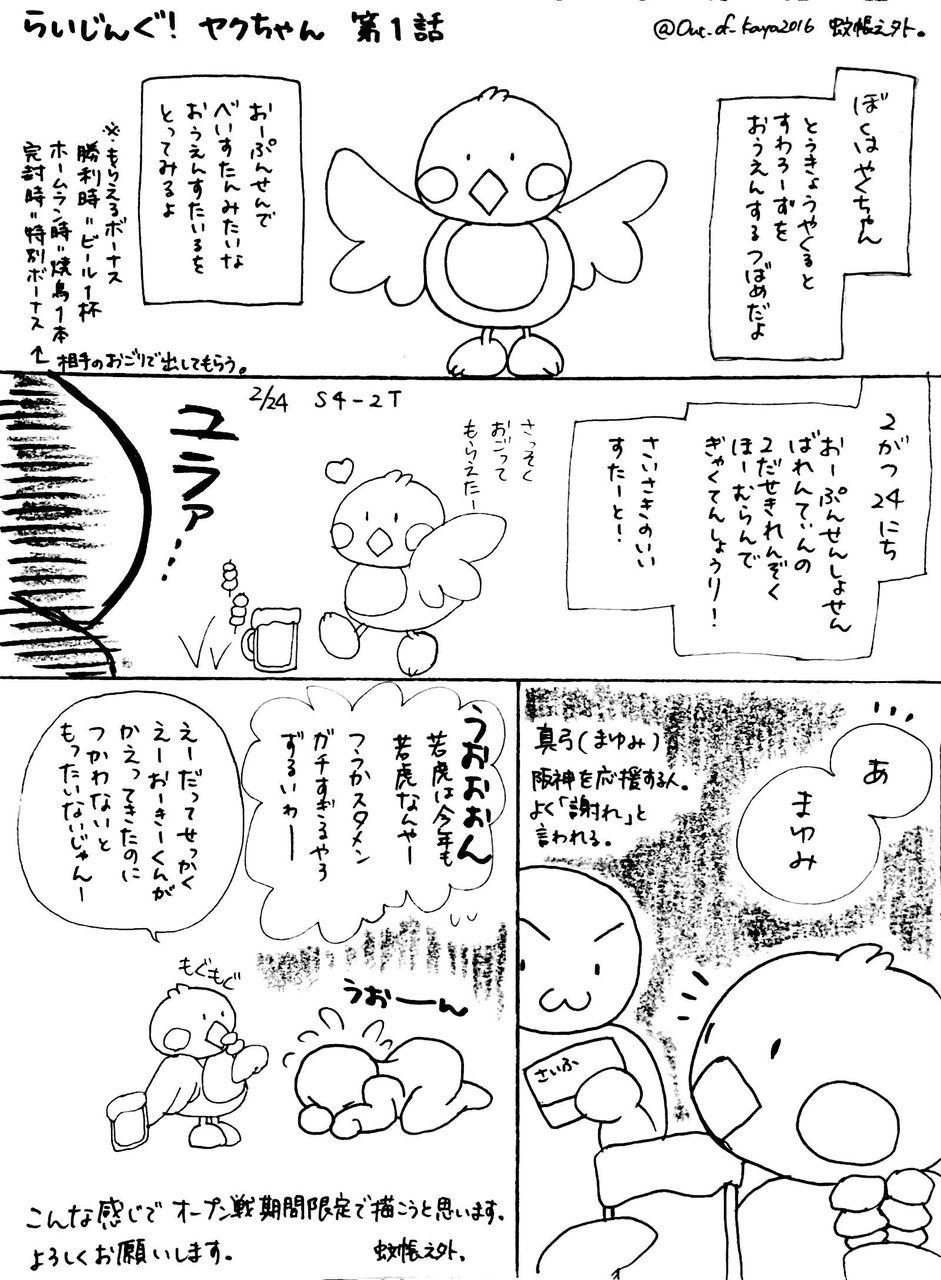 らいじんぐ! ヤクちゃん 第1話
@Out_of_Kaya2016 蚊帳之外。
ぼくはやくちゃん
とうきょうやくると
すわろーずを
おうえんするつばめだよ
おーぷんせんで
べいすたんみたいな
おうえんすたいるを
とってみるよ
※もらえるボーナス
勝利時=ビール1杯
ホームラン時=焼鳥1本
完封時=特別ボーナス
↑相手のおごりで出してもらう。
2がつ24にち
おーぷんせんしょせん
ばれんてぃんの
2だせきれんぞく
ほーむらんで
ぎゃくてんしょうり!
さいさきのいい
すたーと!
2/24 S4-2T
さっそく
おごって
もらえたー
ユラァ…
あ
まゆみ
真弓(まゆみ)
阪神を応援する人。
よく「謝れ」と
言われる。
さいふ
うおぉぉん
若虎は今年も
若虎なんやー
つうかスタメン
ガチすぎるやろ
ずるいわー
えーだってせっかく
えーおーきーくんが
かえってきたのに
つかわないと
もったいないじゃんー
もぐもぐ
うおーーん
こんな感じでオープン戦期間限定で描こうと思います。
よろしくお願いします。 蚊帳之外。